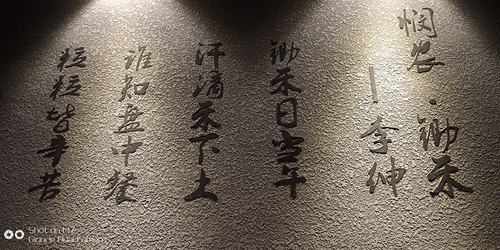 悯农·锄禾
—李绅
锄禾日当午
汗滴禾下土
谁知盘中餐
粒粒皆辛苦
Shot on M7